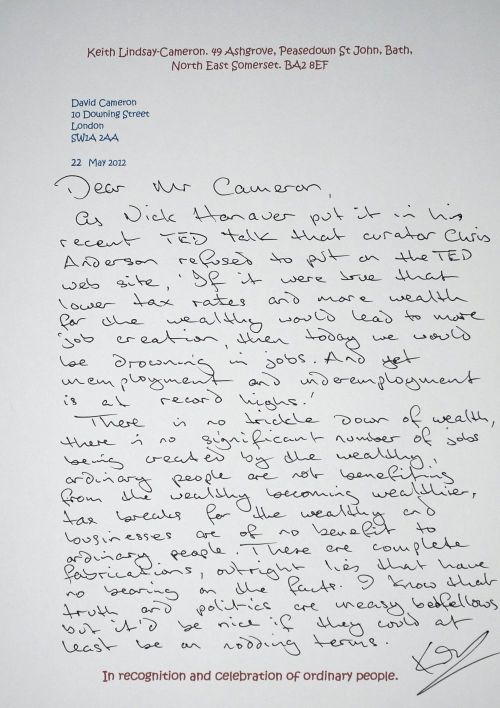 Keith Lindsay-Cameron. 49 Ashgrove, Peasedown St John, Bath,
North East Somerset. BA2 8EF
David Cameron
10 Downing Street
London
SW1A 2AA
22 May 2012
Dear Mr Cameron,
As Nick Hanauer put it in his
recent TED talk that curator Chris
Anderson refused to put on the TED
web site, 'If it were true that
lower tax rates and more wealth
for the wealthy would lead to more
job creation, then today we would
be drowning in jobs. And yet
unemployment and underemployment
is at record highs.'
There is no trickle down of wealth,
there is no significant number of jobs
being created by the wealthy,
ordinary people are not benefiting
from the wealthy becoming wealthier,
tax breaks for the wealthy and
businesses are of no benefit to
ordinary people. These are complete
fabrications, outright lies that have
no bearing on the facts. I know that
truth and politics are uneasy bedfellows
but it'd be nice if they could at
least be on nodding terms.
In recognition and celebration of ordinary people.